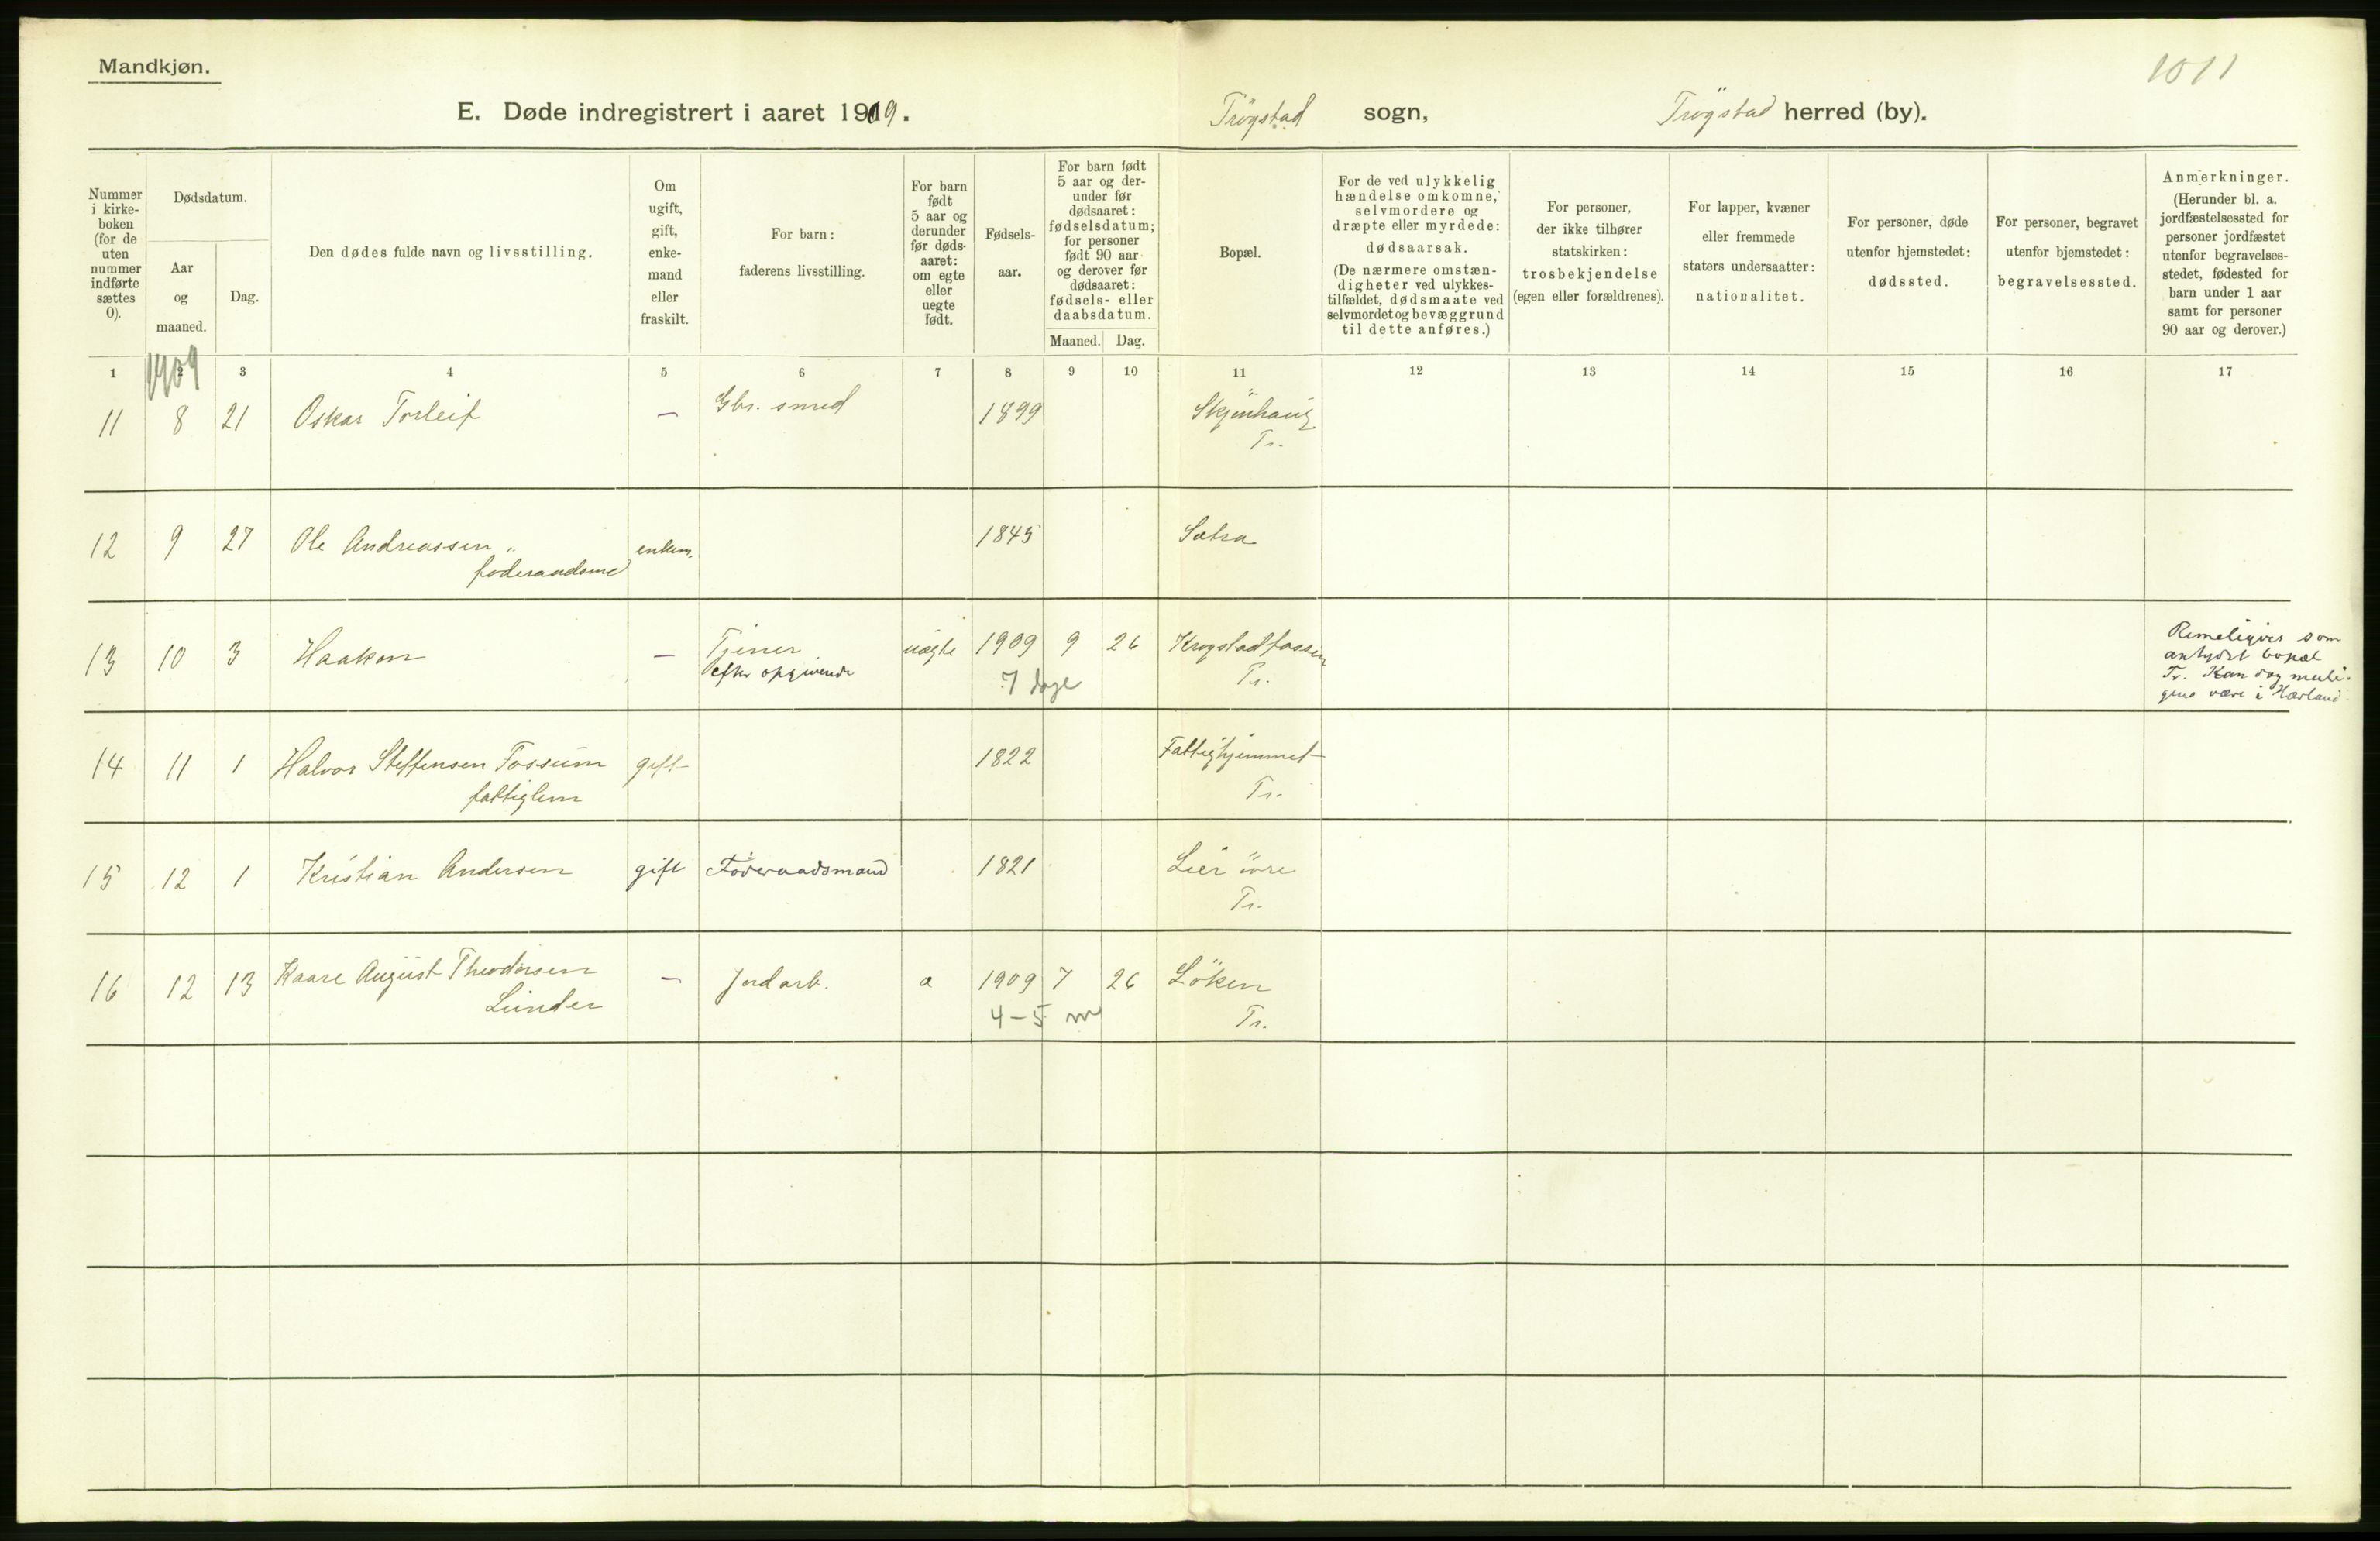 Mandkjøn.
1011
E. Døde indregistrert i aaret 1909.
Trögstad sogn,
Trögstad herred (by).
Nummer
i kirke-
boken
(for de
uten
nummer
indførte
sættes
0).
Dødsdatum.
Aar
og
maaned.
Dag.
Den dødes fulde navn og livsstilling.
Om
ugift,
gift,
enke-
mand
eller
fraskilt.
For barn:
faderens livsstilling.
For barn
født
5 aar og
derunder
før døds-
aaret:
om egte
eller
uegte
født.
Fødsels-
aar.
For barn født
5 aar og der-
under før
dødsaaret:
fødselsdatum;
for personer
født 90 aar
og derover før
dødsaaret:
fødsels- eller
daabsdatum.
Maaned. Dag.
Bopæl.
For de ved ulykkelig
hændelse omkomne,
selvmordere og
dræpte eller myrdede:
dødsaarsak.
(De nærmere omstæn-
digheter ved ulykkes-
tilfældet, dødsmaate ved
selvmordet og bevæggrund
til dette anføres.)
For personer,
der ikke tilhører
statskirken:
trosbekjendelse
(egen eller forældrenes).
For lapper, kvæner
eller fremmede
staters undersaatter:
nationalitet.
For personer, døde
utenfor hjemstedet:
dødssted.
For personer, begravet
utenfor hjemstedet:
begravelsessted.
Anmerkninger.
(Herunder bl. a.
jordfæstelsessted for
personer jordfæstet
utenfor begravelses-
stedet, fødested for
barn under 1 aar
samt for personer
90 aar og derover.)
1 2 3 4 5 6 7 8 9 10 11 12 13 14 15 16 17
1909
11 8 21 Oskar Torleif — Gbr. smed 1899 Skjönhaug
Tr.
12 9 27 Ole Andreassen enkem. 1845 Sætra
foderaadsmd
13 10 3 Haakon — Tjener uægte 1909 9 26 Krogstadfossen
efter opgivende
7 dage
Tr.
Rimeligvis som
antydet bopæl
Tr. Kan dog muli-
gens være i Hærland.
14 11 1 Halvor Steffensen Fossum gift 1822 Fattighjemmet
fattiglem
Tr.
15 12 1 Kristian Andersen gift Föderaadsmand 1821 Lier övre
Tr.
16 12 13 Kaare August Theodorsen — Jordarb. 1909 7 26 Löken
Lunder
4-5 m
Tr.